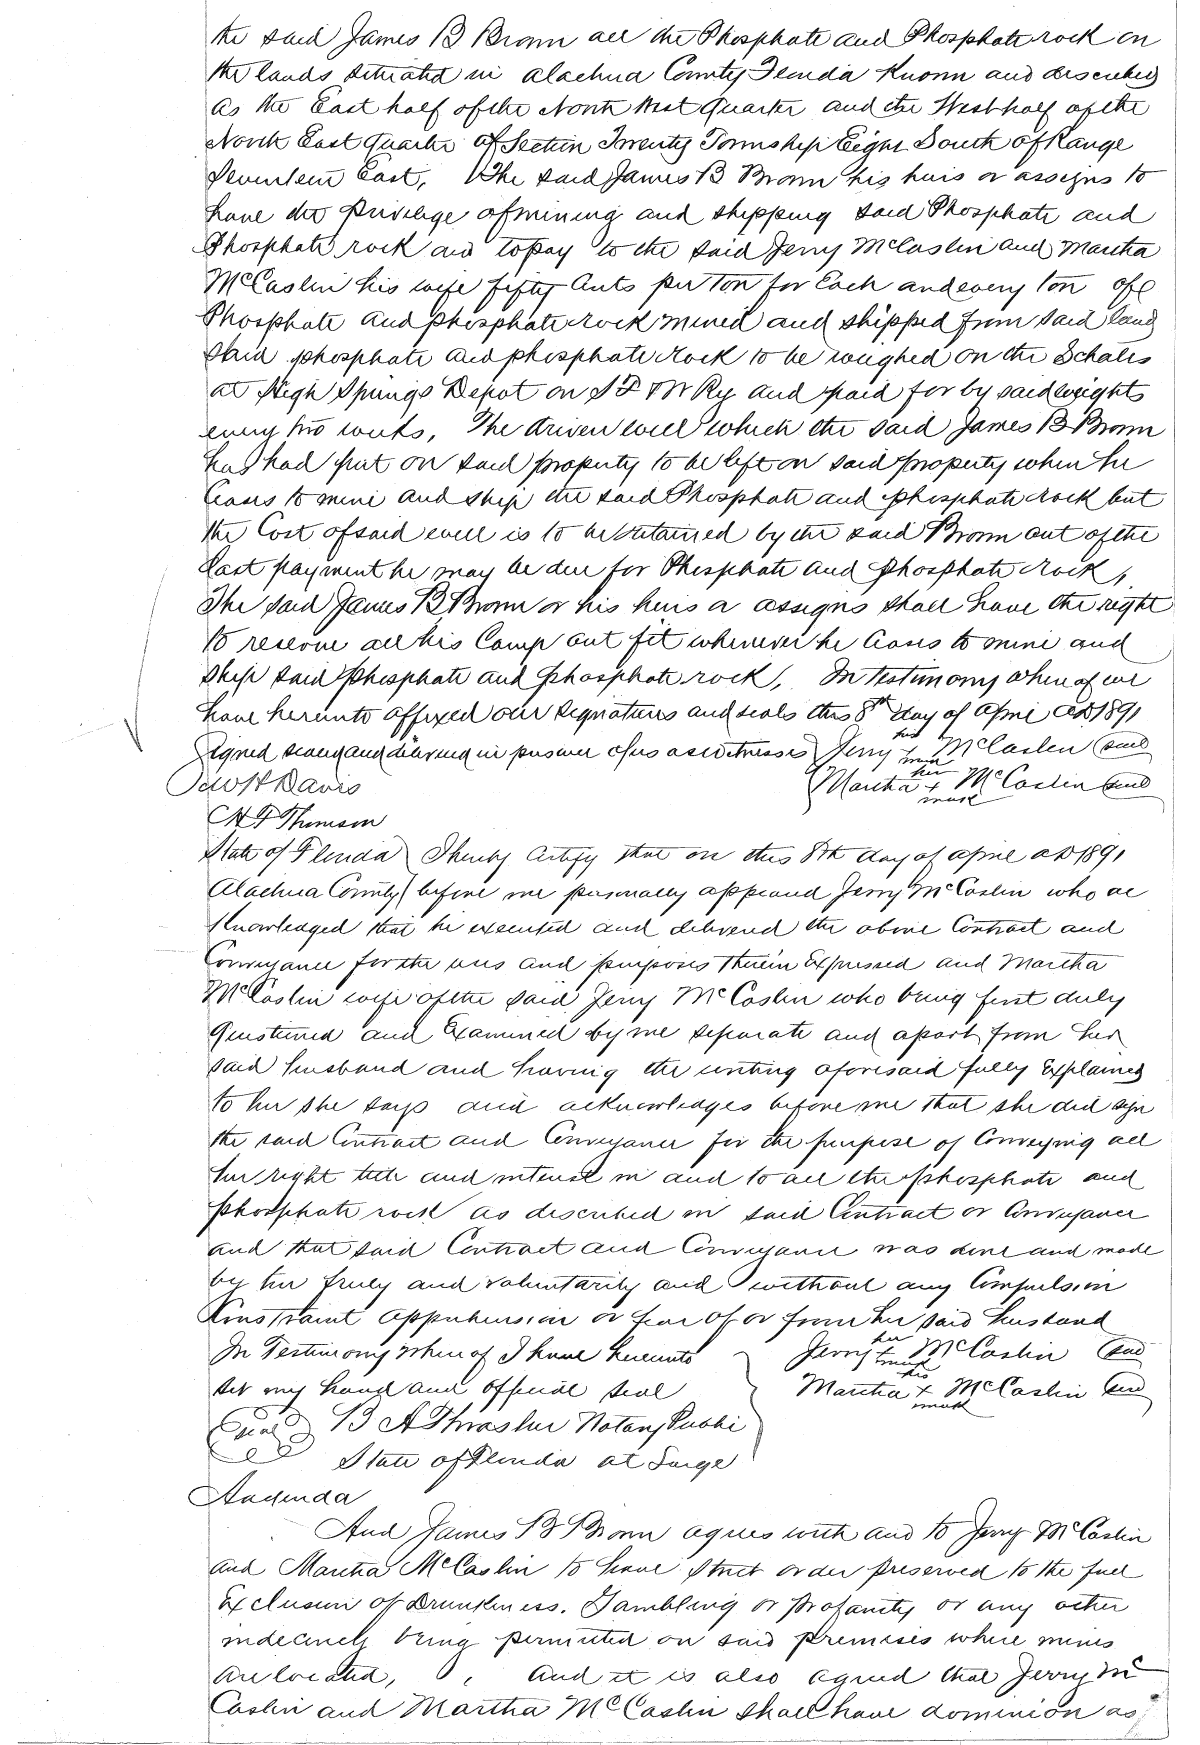 the said James B Brown all the Phosphate and Phosphate rock on
the lands situated in Alachua County Florida Known and described
as the East half of the North West quarter and the West half of the
North East quarter of Section Twenty Township Eight South of Range
Seventeen East, The said James B Brown his heirs or assigns to
have the privilege of mining and shipping said Phosphate and
Phosphate rock and to pay to the said Jerry McCaslin and Martha
McCaslin his wife fifty Cents per Ton for Each and every Ton of
Phosphate and phosphate rock mined and shipped from said land
Said phosphate and phosphate rock to be weighed on the Schales
at High Springs Depot on S F & W Ry and paid for by said weights
every two weeks, The driven well which the said James B Brown
has had put on said property to be left on said property when he
Ceases to mine and ship the said Phosphate and phosphate rock but
the Cost of said well is to be retained by the said Brown out of the
last payment he may be due for Phosphate and phosphate rock,
The said James B Brown or his heirs or assigns shall have the right
to reserve all his Camp out fit whenever he Ceases to mine and
ship said phosphate and phosphate rock, In testimony whereof we
have hereunto affixed our signatures and seals this 8th day of April AD 1891
Signed sealed and delivered in presence of us as witnesses Jerry his x mark McCaslin seal
W H Davis Martha her x mark McCaslin seal
H F Thomson
State of Florida I hereby Certify that on this 8th day of April AD 1891
Alachua County before me personally appeared Jerry McCaslin who ac
knowledged that he executed and delivered the above Contract and
Conveyance for the uses and purposes therein Expressed and Martha
McCaslin wife of the said Jerry McCaslin who being first duly
questioned and Examined by me separate and apart from her
said husband and having the writing aforesaid fully Explained
to her she says and acknowledges before me that she did sign
the said Contract and Conveyance for the purpose of Conveying all
her right title and interest in and to all the phosphate and
phosphate rock as described in said Contract or Conveyance
and that said Contract and Conveyance was done and made
by her freely and voluntarily and without any Compulsion
Constraint apprehension or fear of or from her said husband
In Testimony whereof I have hereunto Jerry her x mark McCaslin seal
set my hand and official seal Martha his x mark McCaslin seal
Seal B A Thrasher Notary Public
State of Florida at Large
Addenda
And James B Brown agrees with and to Jerry McCaslin
and Martha McCaslin to have strict order preserved to the full
Exclusion of Drunkness. Gambling or profanity or any other
indecency being permitted on said premises where mines
are located, , and it is also agreed that Jerry Mc
Caslin and Martha McCaslin shall have dominion as